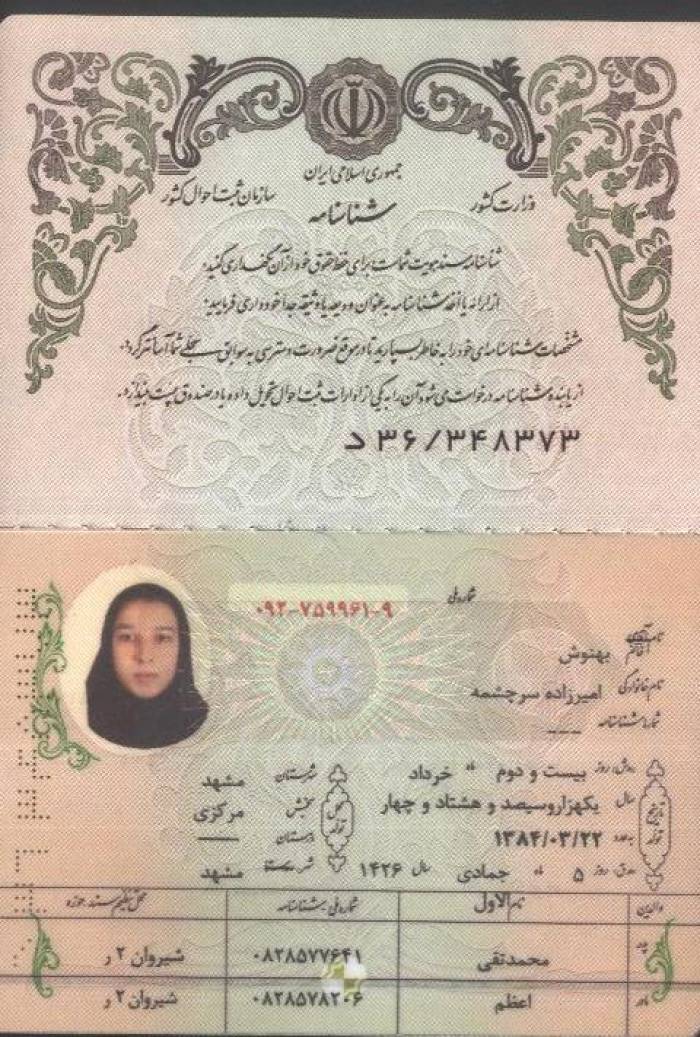 جمهوری اسلامی ایران
وزارت کشور
سازمان ثبت احوال کشور
شناسنامه
شناسنامه سند هویت شماست برای حفظ حقوق خود از آن نگهداری کنید.
از ارائه یا اخذ شناسنامه به عنوان ودیعه یا وثیقه جداً خودداری فرمایید.
مشخصات شناسنامه‌ای خود را به خاطر بسپارید تا در موقع ضرورت دسترسی به سوابق سجلی شما آسانتر گردد.
از یابنده شناسنامه درخواست می شود آن را به یکی از ادارات ثبت احوال تحویل داده یا در صندوق پست بیندازد.
د ۳۶/۳۴۸۳۷۳
شماره ملی ۰۹۲-۷۵۹۹۶۱-۹
نام بهنوش
خانم
نام خانوادگی امیرزاده سرچشمه
شماره شناسنامه ---
تاریخ تولد
روز بیست و دوم ماه خرداد
سال یکهزاروسیصد و هشتاد و چهار
به عدد ۱۳۸۴/۰۳/۲۲
روز ۵ ماه جمادی سال ۱۴۲۶
الاول
محل تولد
شهرستان مشهد
بخش مرکزی
دهستان ---
شهر مشهد
والدین نام شماره ملی / شناسنامه محل تنظیم سند حوزه
پدر محمدتقی ۰۸۲۸۵۷۷۶۴۱ شیروان ۲ ر
مادر اعظم ۰۸۲۸۵۷۸۲۰۶ شیروان ۲ ر